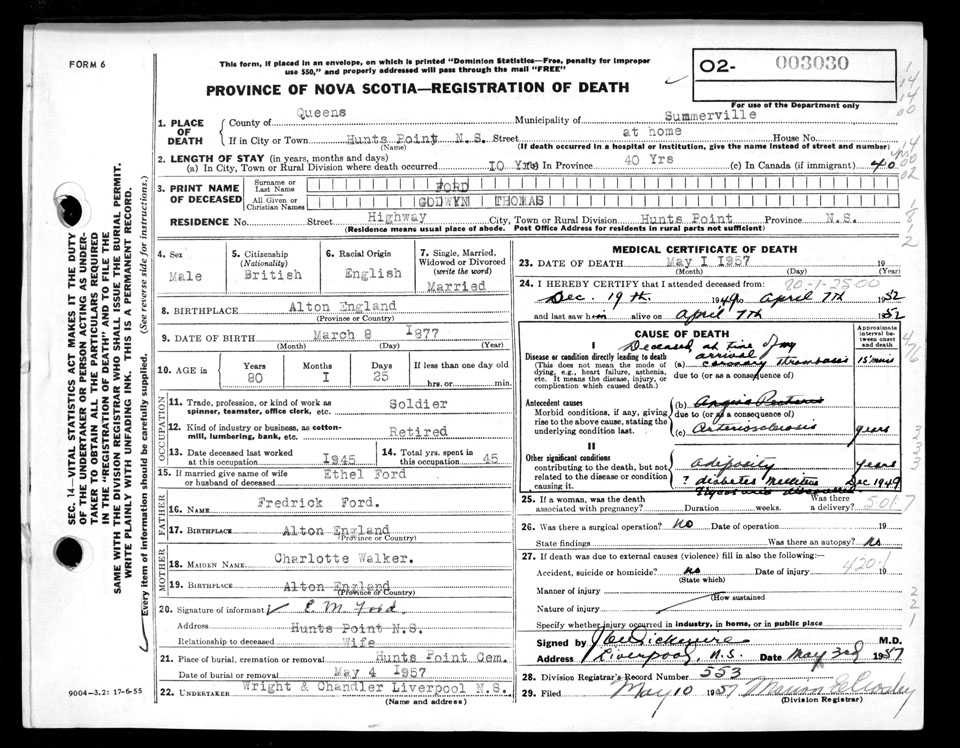 FORM 6
This form, if placed in an envelope, on which is printed "Dominion Statistics—Free, penalty for improper
use $50," and properly addressed will pass through the mail "FREE"
PROVINCE OF NOVA SCOTIA—REGISTRATION OF DEATH
O2- 003030
For use of the Department only
1. PLACE OF DEATH
County of Queens Municipality of Summerville
If in City or Town Hunts Point N.S. Street at home House No.
(Name) (If death occurred in a hospital or institution, give the name instead of street and number)
2. LENGTH OF STAY (in years, months and days)
(a) In City, Town or Rural Division where death occurred IO Yrs In Province 40 Yrs (c) In Canada (if immigrant) 40 yrs
3. PRINT NAME OF DECEASED
Surname or Last Name FORD
All Given or Christian Names GODWYN THOMAS
RESIDENCE No. Street Highway City, Town or Rural Division Hunts Point Province N.S.
(Residence means usual place of abode. Post Office Address for residents in rural parts not sufficient)
4. Sex Male
5. Citizenship (Nationality) British
6. Racial Origin English
7. Single, Married, Widowed or Divorced (write the word) Married
8. BIRTHPLACE Alton England
(Province or Country)
9. DATE OF BIRTH March 8 I877
(Month) (Day) (Year)
10. AGE in Years 80 Months I Days 25 If less than one day old hrs. or min.
OCCUPATION
11. Trade, profession, or kind of work as spinner, teamster, office clerk, etc. Soldier
12. Kind of industry or business, as cotton-mill, lumbering, bank, etc. Retired
13. Date deceased last worked at this occupation I945
14. Total yrs. spent in this occupation 45
15. If married give name of wife or husband of deceased Ethel Ford
FATHER
16. NAME Fredrick Ford.
17. BIRTHPLACE Alton England
(Province or Country)
MOTHER
18. MAIDEN NAME Charlotte Walker.
19. BIRTHPLACE Alton England
(Province or Country)
20. Signature of informant E. M. Ford.
Address Hunts Point N.S.
Relationship to deceased Wife
21. Place of burial, cremation or removal Hunts Point Cem.
Date of burial or removal May 4 I957
22. UNDERTAKER Wright & Chandler Liverpool N.S.
(Name and address)
MEDICAL CERTIFICATE OF DEATH
23. DATE OF DEATH May I I957 19
(Month) (Day) (Year)
24. I HEREBY CERTIFY that I attended deceased from:
Dec. 19th 1949 to April 7th 1952
and last saw him alive on April 7th 1952
CAUSE OF DEATH
Approximate interval between onset and death
I Deceased at time of my arrival
Disease or condition directly leading to death
(This does not mean the mode of dying, e.g., heart failure, asthenia, etc. It means the disease, injury, or complication which caused death.)
(a) coronary thrombosis 15 mins
due to (or as a consequence of)
Antecedent causes
Morbid conditions, if any, giving rise to the above cause, stating the underlying condition last.
(b) Angina Pectoris
due to (or as a consequence of)
(c) Arteriosclerosis years
II
Other significant conditions
contributing to the death, but not related to the disease or condition causing it.
adiposity years
? diabetes mellitus Dec 1949
25. If a woman, was the death associated with pregnancy? Duration weeks. Was there a delivery?
5017
26. Was there a surgical operation? No Date of operation 19
State findings Was there an autopsy? No
27. If death was due to external causes (violence) fill in also the following:—
Accident, suicide or homicide? no Date of injury 19
(State which)
4201
Manner of injury
(How sustained
Nature of injury
Specify whether injury occurred in industry, in home, or in public place
Signed by M.D.
Address Liverpool, N.S. Date May 3rd 1957
28. Division Registrar's Record Number 553
29. Filed May 10 1957
(Division Registrar)
SEC. 14—VITAL STATISTICS ACT MAKES IT THE DUTY
OF THE UNDERTAKER OR PERSON ACTING AS UNDER-
TAKER TO OBTAIN ALL THE PARTICULARS REQUIRED
IN THE "REGISTRATION OF DEATH" AND TO FILE THE
SAME WITH THE DIVISION REGISTRAR WHO SHALL ISSUE THE BURIAL PERMIT.
WRITE PLAINLY WITH UNFADING INK. THIS IS A PERMANENT RECORD.
Every item of information should be carefully supplied. (See reverse side for instructions.)
9004-3.2: 17-6-55